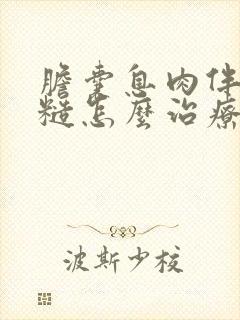 膽囊息肉伴
糙怎麼治療
波斯少校